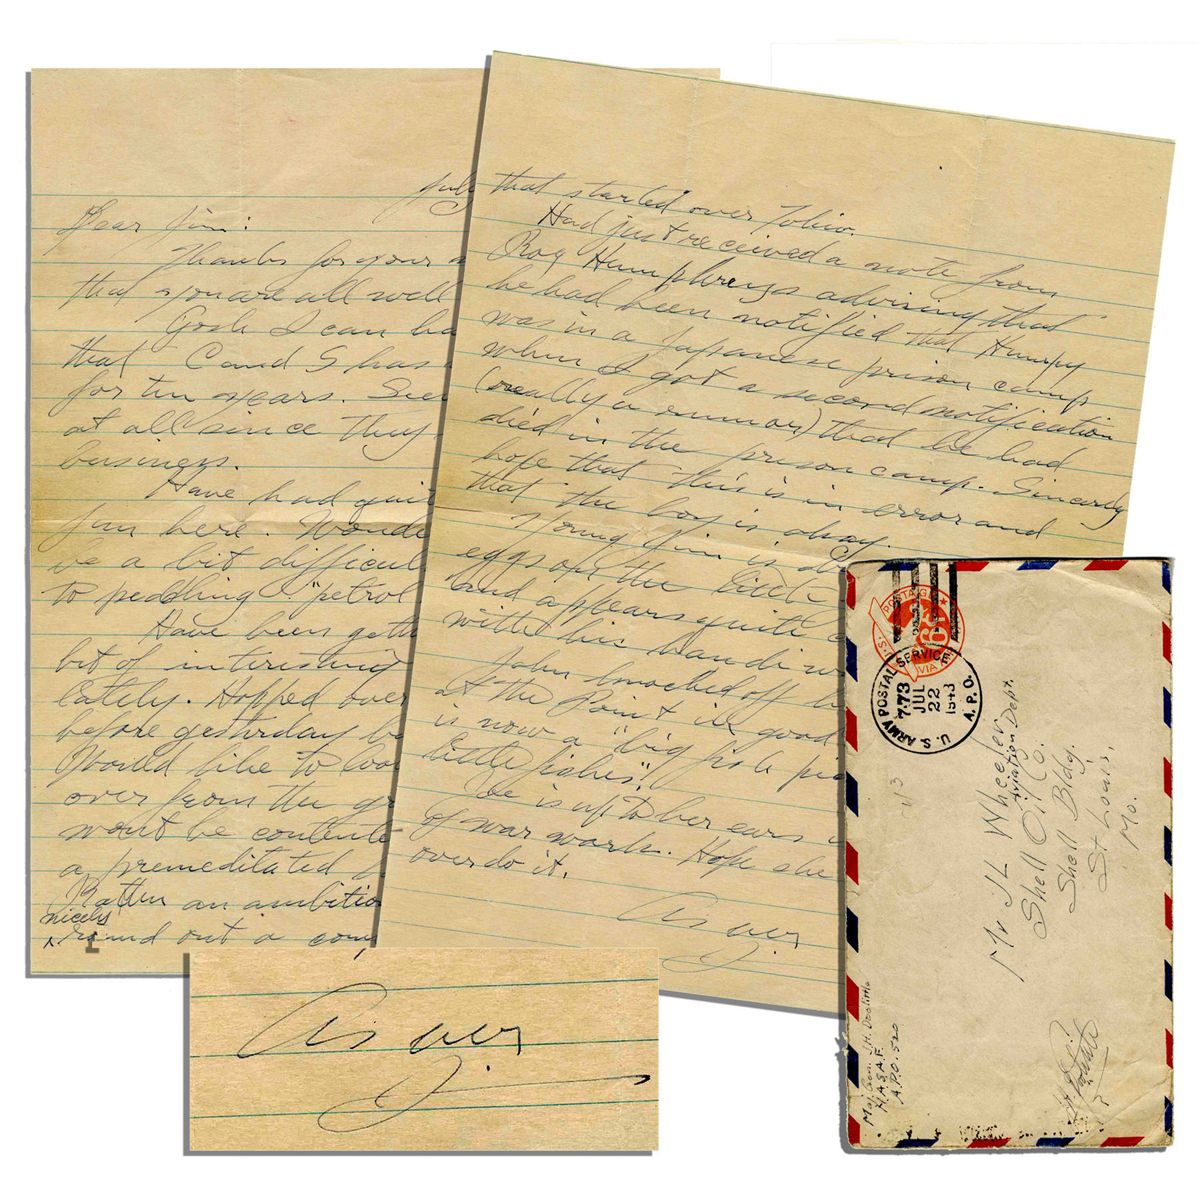 July
Dear Jim:
Thanks for your
that you are all well
Gosh I can
that C and S has
for ten years.
at all since they
business.
Have had
fun here.
be a bit difficult
to peddling "petrol
Have been
bit of interesting
lately. Hopped over
before yesterday
Would like to
over from the
wont be
a premeditated
Rather an
nicely
round out a
that started over Tokio.
Had just received a note from
Roy Humphreys advising that
he had been notified that Humpy
was in a Japanese prison camp
when I got a second notification
(really a rumor) that he had
died in the prison camp. Sincerely
hope that this is in error and
that the boy is okay.
Young Jim is
eggs on the little
and appears quite
with his
John knocked off
at the Point in good
is now a "big fish
little fishes".
Joe is up to her ears
of war work. Hope she
over do it.
As ever
J.
As ever
J.
U.S. POSTAGE
6¢
VIA AIR
U.S. ARMY POSTAL SERVICE
A.P.O.
773
JUL
22
1943
Mr JL Wheeler
Aviation Dept.
Shell Oil Co.
Shell Bldg.
St Louis.
Mo.
Maj. Gen. J.H. Doolittle
N.A.S.A.F.
A.P.O. 520